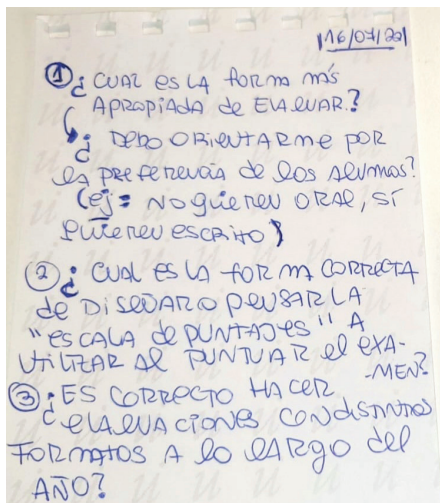 16/07/22
① ¿CUAL ES LA FORMA MÁS
APROPIADA de EVALUAR?
¿DEBO ORIENTARME POR
LA PREFERENCIA DE LOS ALUMNOS?
(ej: NO QUIEREN ORAL, SÍ
QUIEREN ESCRITO)
② ¿CUAL ES LA FORMA CORRECTA
de DISEÑAR O PENSAR LA
"ESCALA de PUNTAJES" A
UTILIZAR AL PUNTUAR el EXA-
-MEN?
③ ¿ES CORRECTO HACER
EVALUACIONES CON DISTINTOS
FORMATOS A LO LARGO del
AÑO?